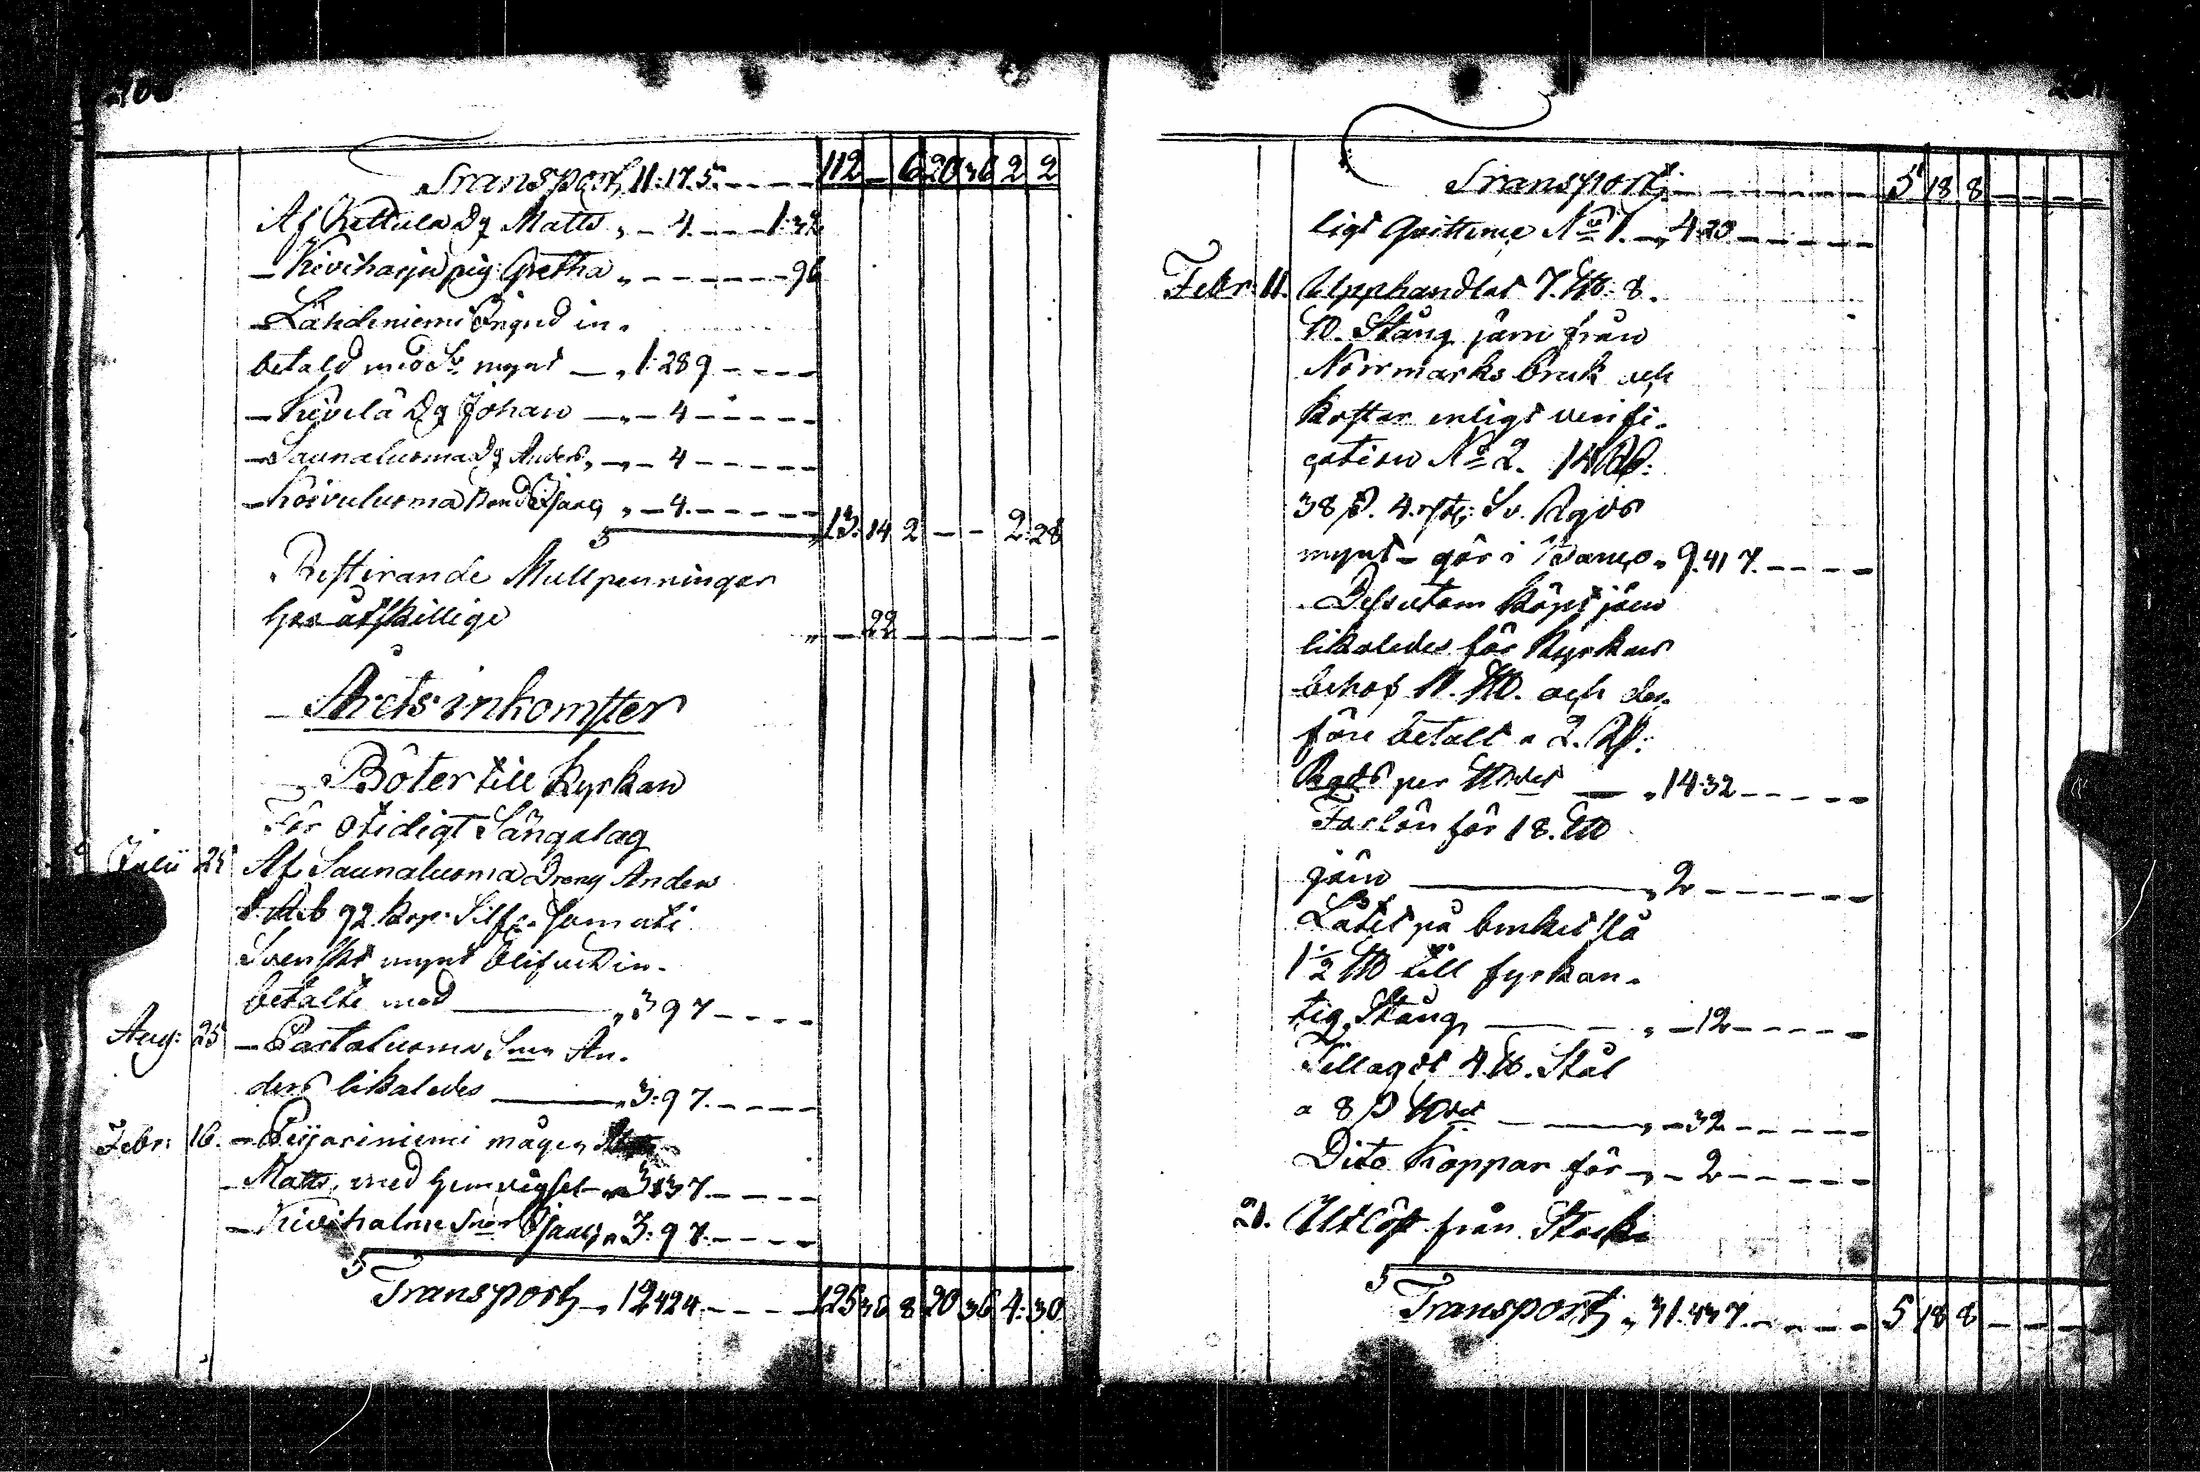 Transport 11:17.5. 112 — 6 20 36 2 2
Af Kettula Dg Matts „ — 4. — 1:32
— Kiviharju pig: Gretha „ — 96
— Lähdeniemi Ingrid in-
betald med Sv. mynt — „ 1:28 9
— Kivelä Dg Johan — „ — 4
— Saunaluoma Dg Anders „ — 4
— Koivuluoma Bond Isaac „ — 4. 13. 14 2 — — 2:28
Resterande Mullpenningar
hos åtskillige „ — 22
Årets inkomster
Böter till Kyrkan
För otidigt Sängalag
Julii 25 Af Saunaluoma Dreng Anders
1 Rub 92 kop: Silfr. som uti
Svenskt mynt blifvit in-
betalte med — „ 3 9 7
Aug: 25 — Pastoluoma Son An-
ders likaledes — „ 3:9 7.
Febr: 16. — Peijariniemi mågen
Matts, med hemvigsel — „ 3:37
— Kiviholme Son Isaac „ 3:9 7.
Transport „ 12 42 4 125 36 8 20 36 4:30
Transport 5 18 8
ligt Quittence No 1. — „ 4 23
Febr. 11. Upphandlat 7. ℔: 8.
℔. Stång järn från
Norrmarks bruk och
kostar enligt verifi-
cation No 2. 14 Rd:
38 s. 4. rst: Sv. Rgds
mynt — gör i Banco „ 9. 41 7.
Dessutom köpt järn
likaledes för Kyrkans
behof 11. ℔. och der-
före betalt a 2. Rd:
Rgds per ℔det — „ 14:32
Forlön för 18. ℔
järn — „ 2
Låtit på bruket slå
1 1/2 ℔ till fyrkan-
tig Stång — „ — 12
Tillagdt 4 ℔. Stål
a 8 s ℔det — „ — 32
Dito Koppar för — „ — 2
21. Utlöst från Stock-
Transport „ 31. 43 7. 5 18 8